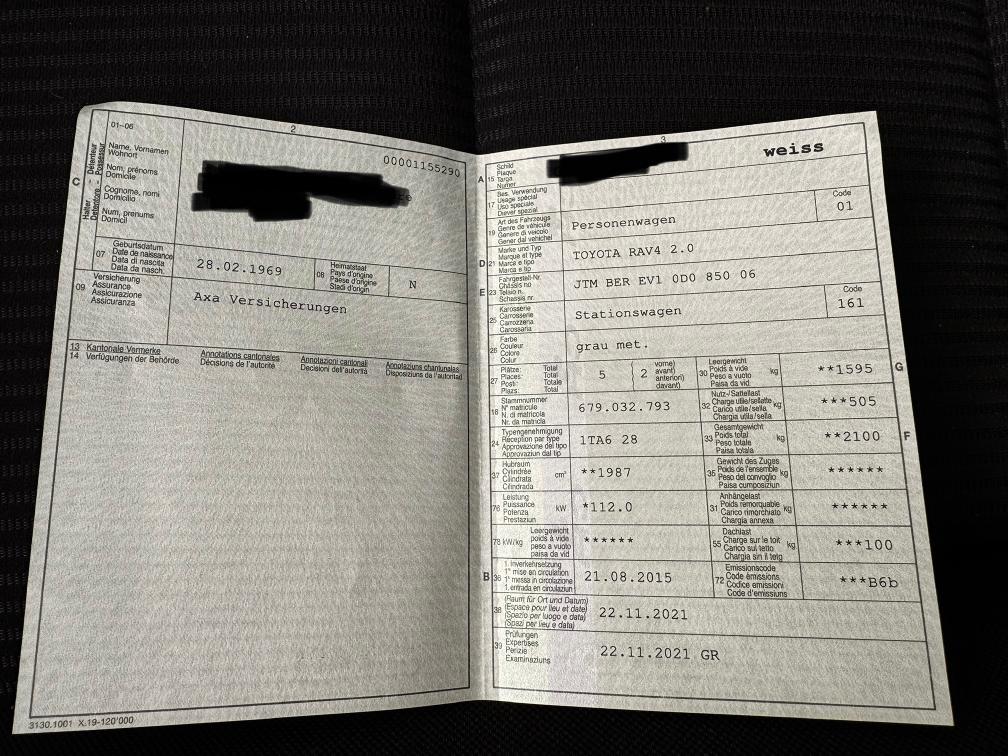 2
01-06
00001155290
C
Halter - Détenteur
Detentore - Possessur
Name, Vornamen
Wohnort
Nom, prénoms
Domicile
Cognome, nomi
Domicilio
Num, prenums
Domicil
07
Geburtsdatum
Date de naissance
Data di nascita
Data da nasch.
28.02.1969
08
Heimatstaat
Pays d'origine
Paese d'origine
Stadi d'origin
N
09
Versicherung
Assurance
Assicurazione
Assicuranza
Axa Versicherungen
13 Kantonale Vermerke
14 Verfügungen der Behörde
Annotations cantonales
Décisions de l'autorité
Annotazioni cantonali
Decisioni dell'autorità
Annotaziuns chantunalas
Disposiziuns da l'autoritad
3130.1001 X.19-120'000
3
A 15
Schild
Plaque
Targa
Numer
weiss
17
Bes. Verwendung
Usage spécial
Uso speciale
Diever spezial
19
Art des Fahrzeugs
Genre de véhicule
Genere di veicolo
Gener dal vehichel
Personenwagen
Code
01
D 21
Marke und Typ
Marque et type
Marca e tipo
Marca e tip
TOYOTA RAV4 2.0
E 23
Fahrgestell-Nr.
Châssis no
Telaio n.
Schassis nr.
JTM BER EV1 0D0 850 06
25
Karosserie
Carrosserie
Carrozzeria
Carossaria
Stationswagen
Code
161
26
Farbe
Couleur
Colore
Colur
grau met.
27
Plätze: Total
Places: Total
Posti: Totale
Plazs: Total
5
2
vorne)
avant)
anteriori)
davant)
30
Leergewicht
Poids à vide
Peso a vuoto
Paisa da vid
kg
**1595
G
18
Stammnummer
N° matricule
N. di matricola
Nr. da matricla
679.032.793
32
Nutz-/Sattellast
Charge utile/sellette
Carico utile/sella
Chargia utila/sella
kg
***505
24
Typengenehmigung
Réception par type
Approvazione del tipo
Approvaziun dal tip
1TA6 28
33
Gesamtgewicht
Poids total
Peso totale
Paisa totala
kg
**2100
F
37
Hubraum
Cylindrée
Cilindrata
Cilindrada
cm³
**1987
35
Gewicht des Zuges
Poids de l'ensemble
Peso del convoglio
Paisa cumposiziun
kg
******
76
Leistung
Puissance
Potenza
Prestaziun
kW
*112.0
31
Anhängelast
Poids remorquable
Carico rimorchiato
Chargia annexa
kg
******
78 kW/kg
Leergewicht
poids à vide
peso a vuoto
paisa da vid
******
55
Dachlast
Charge sur le toit
Carico sul tetto
Chargia sin il tetg
kg
***100
B 36
1. Inverkehrsetzung
1re mise en circulation
1a messa in circolazione
1. entrada en circulaziun
21.08.2015
72
Emissionscode
Code émissions
Codice emissioni
Code d'emissiuns
***B6b
38
(Raum für Ort und Datum)
(Espace pour lieu et date)
(Spazio per luogo e data)
(Spazi per lieu e data)
22.11.2021
39
Prüfungen
Expertises
Perizie
Examinaziuns
22.11.2021 GR